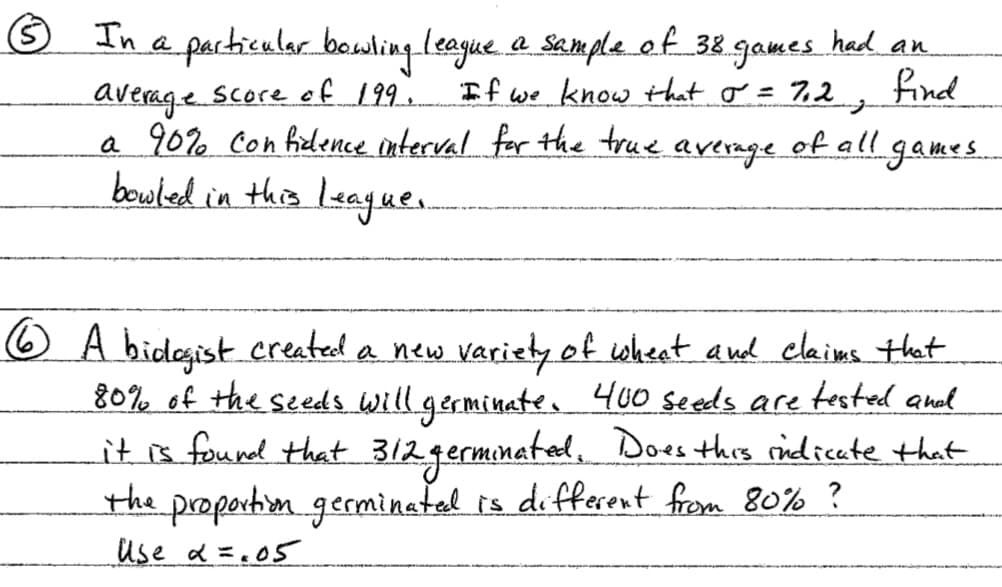 ⑤ In a particular bowling league a sample of 38 games had an
average score of 199. If we know that σ = 7.2, find
a 90% confidence interval for the true average of all games
bowled in this league.
⑥ A biologist created a new variety of wheat and claims that
80% of the seeds will germinate. 400 seeds are tested and
it is found that 312 germinated. Does this indicate that
the proportion germinated is different from 80%?
Use α = .05